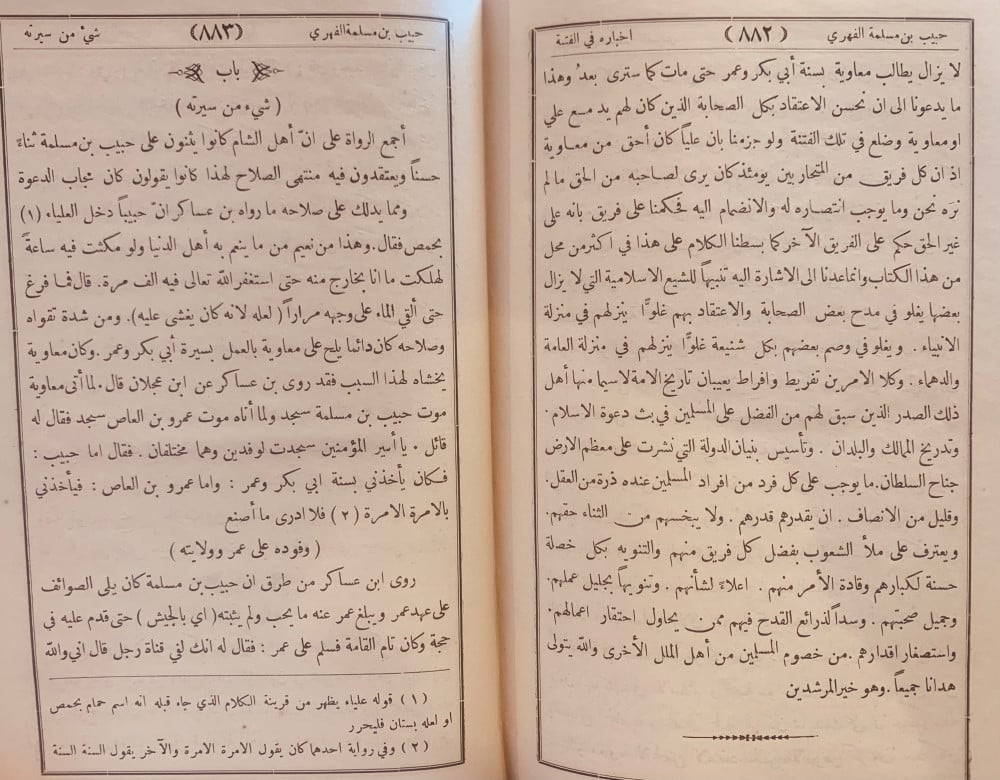 حبيب بن مسلمة الفهري (٨٨٢) اخباره في الفتنة
لا يزال يطالب معاوية بسنة أبي بكر وعمر حتى مات كما سترى بعدُ وهذا
ما يدعونا الى ان نحسن الاعتقاد بكل الصحابة الذين كان لهم يد مع علي
او معاوية وضلع في تلك الفتنة ولو جزمنا بان علياً كان أحق من معاوية
اذ ان كل فريق من المتحاربين يومئذ كان يرى لصاحبه من الحق ما لم
نره نحن وما يوجب انتصاره له والانضمام اليه فحكمنا على فريق بانه على
غير الحق حكم على الفريق الآخر كما بسطنا الكلام على هذا في اكثر من محل
من هذا الكتاب وانما عدنا الى الاشارة اليه تنبيهاً للشيع الاسلامية التي لا يزال
بعضها يغلو في مدح بعض الصحابة والاعتقاد بهم غلوًّا ينزلهم في منزلة
الانبياء . ويغلو في وصم بعضهم بكل شنيعة غلوًّا ينزلهم في منزلة العامة
والدهماء . وكلا الامرين تفريط وافراط يعيبان تاريخ الامة لاسيما منها أهل
ذلك الصدر الذين سبق لهم من الفضل على المسلمين في بث دعوة الاسلام.
وتدريخ المالك والبلدان . وتأسيس بنيان الدولة التي نشرت على معظم الارض
جناح السلطان. ما يوجب على كل فرد من افراد المسلمين عنده ذرة من العقل.
وقليل من الانصاف . ان يقدرهم قدرهم . ولا يبخسهم من الثناء حقهم.
ويعترف على ملأ الشعوب بفضل كل فريق منهم والتنويه بكل خصلة
حسنة لكبارهم وقادة الأمر منهم . اعلاءً لشأنهم . وتنويهاً بجليل عملهم.
وجميل صحبتهم . وسداً لذرائع القدح فيهم ممن يحاول احتقار اعمالهم.
واستصغار اقدارهم . من خصوم المسلمين من أهل الملل الأخرى والله يتولى
هدانا جميعاً. وهو خير المرشدين
حبيب بن مسلمة الفهري (٨٨٣) شيء من سيرته
باب
( شيء من سيرته )
أجمع الرواة على انّ أهل الشام كانوا يثنون على حبيب بن مسلمة ثناءً
حسناً ويعتقدون فيه منتهى الصلاح لهذا كانوا يقولون كان مجاب الدعوة
ومما يدلك على صلاحه ما رواه بن عساكر انّ حبيباً دخل العلياء (١)
بحمص فقال. وهذا من نعيم من ما ينعم به أهل الدنيا ولو مكثت فيه ساعةً
لهلكت ما انا بخارج منه حتى استغفر الله تعالى فيه الف مرة. قال فما فرغ
حتى ألقي الماء على وجهه مراراً ( لعله لانه كان يغشى عليه). ومن شدة تقواه
وصلاحه كان دائما يلح على معاوية بالعمل بسيرة أبي بكر وعمر . وكان معاوية
يخشاه لهذا السبب فقد روى بن عساكر عن ابن عجلان قال . لما أتى معاوية
موت حبيب بن مسلمة سجد ولما أتاه موت عمرو بن العاص سجد فقال له
قائل . يا أمير المؤمنين سجدت لوفدين وهما مختلفان . فقال اما حبيب :
فكان يأخذني بسنة ابي بكر وعمر : واما عمرو بن العاص : فيأخذني
بالامرة الامرة (٢) فلا ادرى ما أصنع
( وفوده على عمر وولايته )
روى ابن عساكر من طرق ان حبيب بن مسلمة كان يلى الصوائف
على عهد عمر ويبلغ عمر عنه ما يحب ولم يثبته ( اي بالجيش ) حتى قدم عليه في
حجة وكان تام القامة فسلم على عمر : فقال له انك لفي قناة رجل قال اني والله
(١) قوله علياء يظهر من قرينة الكلام الذي جاء قبله انه اسم حمام بحمص
او لعله بستان فليحرر
(٢) وفي رواية احدهما كان يقول الامرة الامرة والآخر يقول السنة السنة